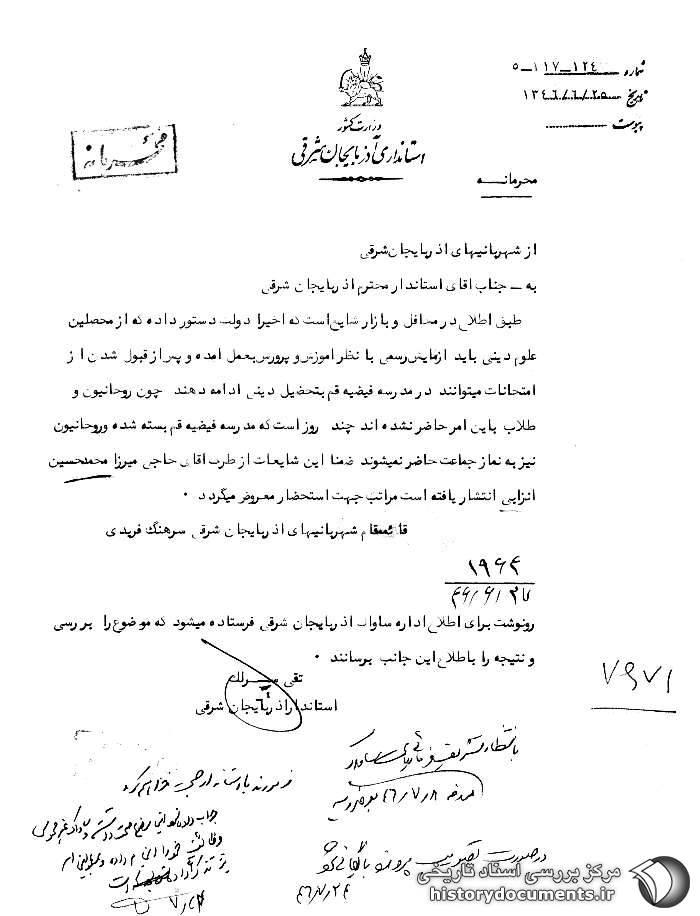 شماره ۱۲۴-۱۱۷-۵
تاریخ ۱۳۴۶/۶/۲۵
پیوست
وزارت کشور
استانداری آذربایجان شرقی
محرمانه
محرمانه
از شهربانیهای اذربایجانشرقی
به – جناب اقای استاندار محترم اذربایجان شرقی
طبق اطلاع در محافل و بازار شایع است که اخیرا دولت دستور داده که از محصلین
علوم دینی باید ازمایش رسمی با نظر اموزش و پرورش بعمل امده و پس از قبول شدن از
امتحانات میتوانند در مدرسه فیضیه قم بتحصیل دینی ادامه دهند چون روحانیون و
طلاب باین امر حاضر نشده اند چند روز است که مدرسه فیضیه قم بسته شده و روحانیون
نیز به نماز جماعت حاضر نمیشوند ضمنا این شایعات از طرف اقای حاجی میرزا محمدحسین
انزابی انتشار یافته است مراتب جهت استحضار معروض میگردد .
قائممقام شهربانیهای اذربایجان شرقی سرهنگ فریدی
۱۹۶۴
۴۶/۶/۲۷
رونوشت برای اطلاع اداره ساواک اذربایجان شرقی فرستاده میشود که موضوع را بررسی
و نتیجه را باطلاع این جانب برسانند .
تقی سرلک
استاندار اذربایجان شرقی
۷۹۷۱
۴۶/۷/۸
در صورت تصویب پرونده بایگانی شود
۴۶/۷/۲۴
مرکز بررسی اسناد تاریخی
historydocuments.ir